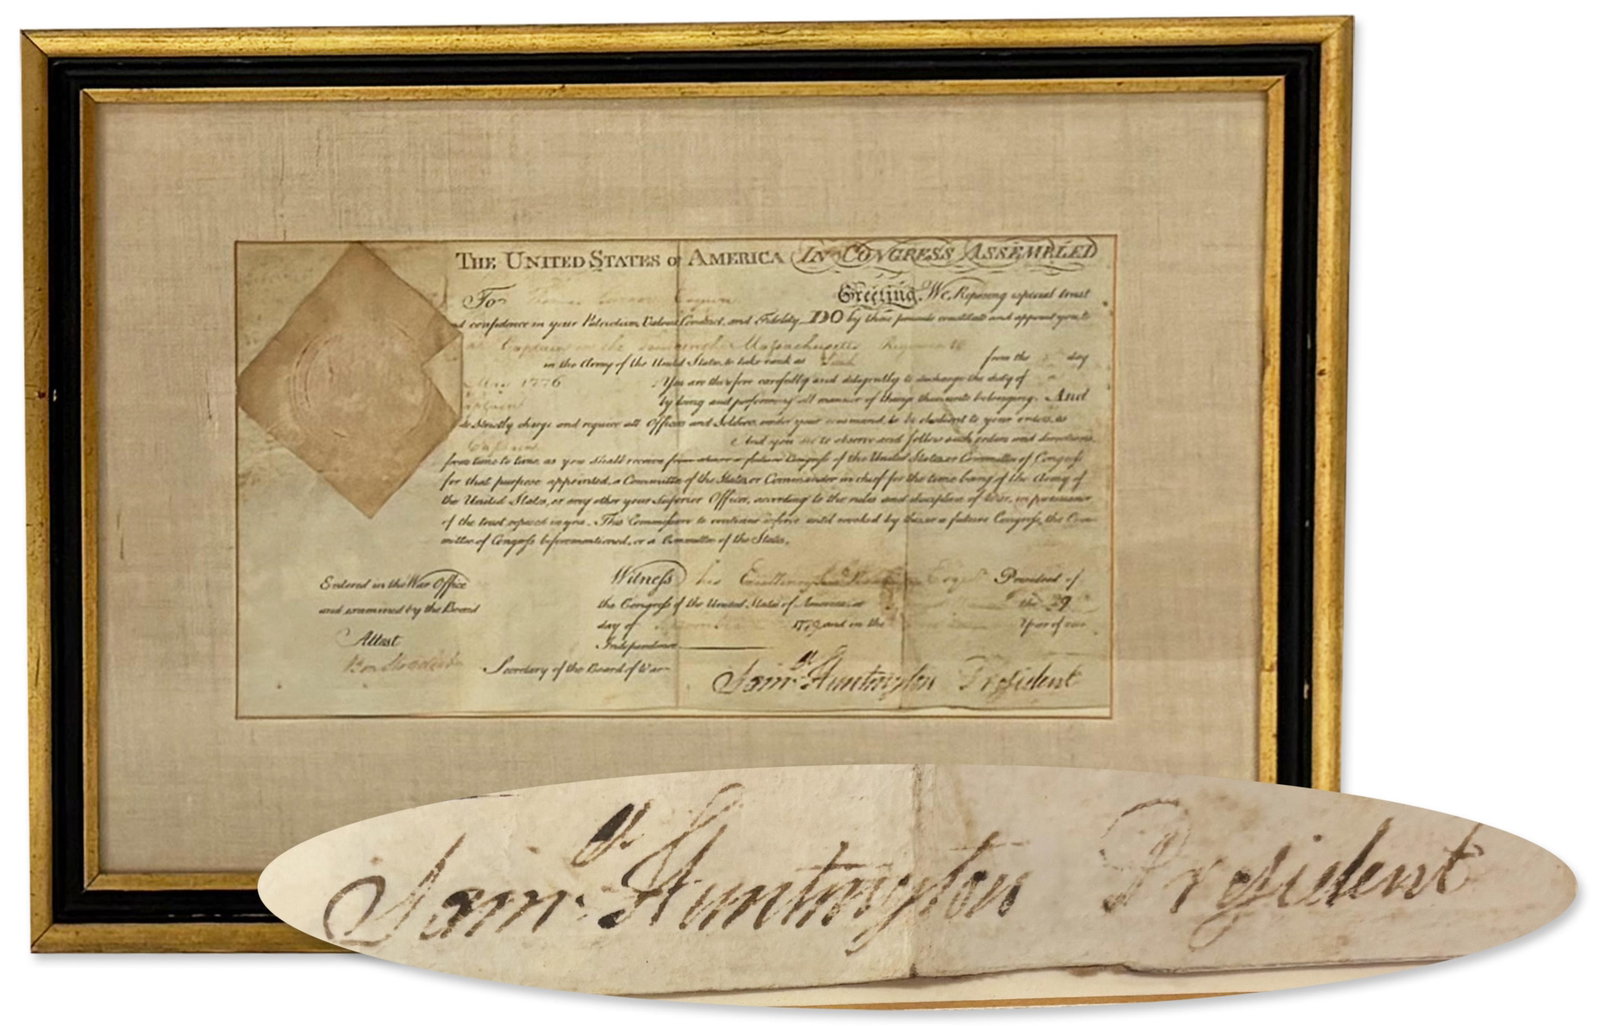 THE UNITED STATES of AMERICA IN CONGRESS ASSEMBLED
To Thomas Esquire Greeting. We, Reposing especial trust
and confidence in your Patriotism, Valour, Conduct, and Fidelity, DO by these presents constitute and appoint you to
be Captain in the Massachusetts Regiment
in the Army of the United States, to take rank as such from the day
1776 You are therefore carefully and diligently to discharge the duty of
Captain by doing and performing all manner of things thereunto belonging. And
we do strictly charge and require all Officers and Soldiers under your command, to be obedient to your orders, as
Captain And you are to observe and follow such orders and directions
from time to time, as you shall receive from this or a future Congress of the United States, or Committee of Congress
for that purpose appointed, a Committee of the States, or Commander in chief for the time being of the Army of
the United States, or any other your Superior Officer, according to the rules and discipline of War, in pursuance
of the trust reposed in you. This Commission to continue in force until revoked by this, or a future Congress, the Com-
mittee of Congress beforementioned, or a Committee of the States.
Entered in the War Office
and examined by the Board
Attest
Secretary of the Board of War
Witness his Excellency Esqr. President of
the Congress of the United States of America, at the 29
day of 1779 and in the Year of our
Independence
Saml. Huntington President
Saml. Huntington President